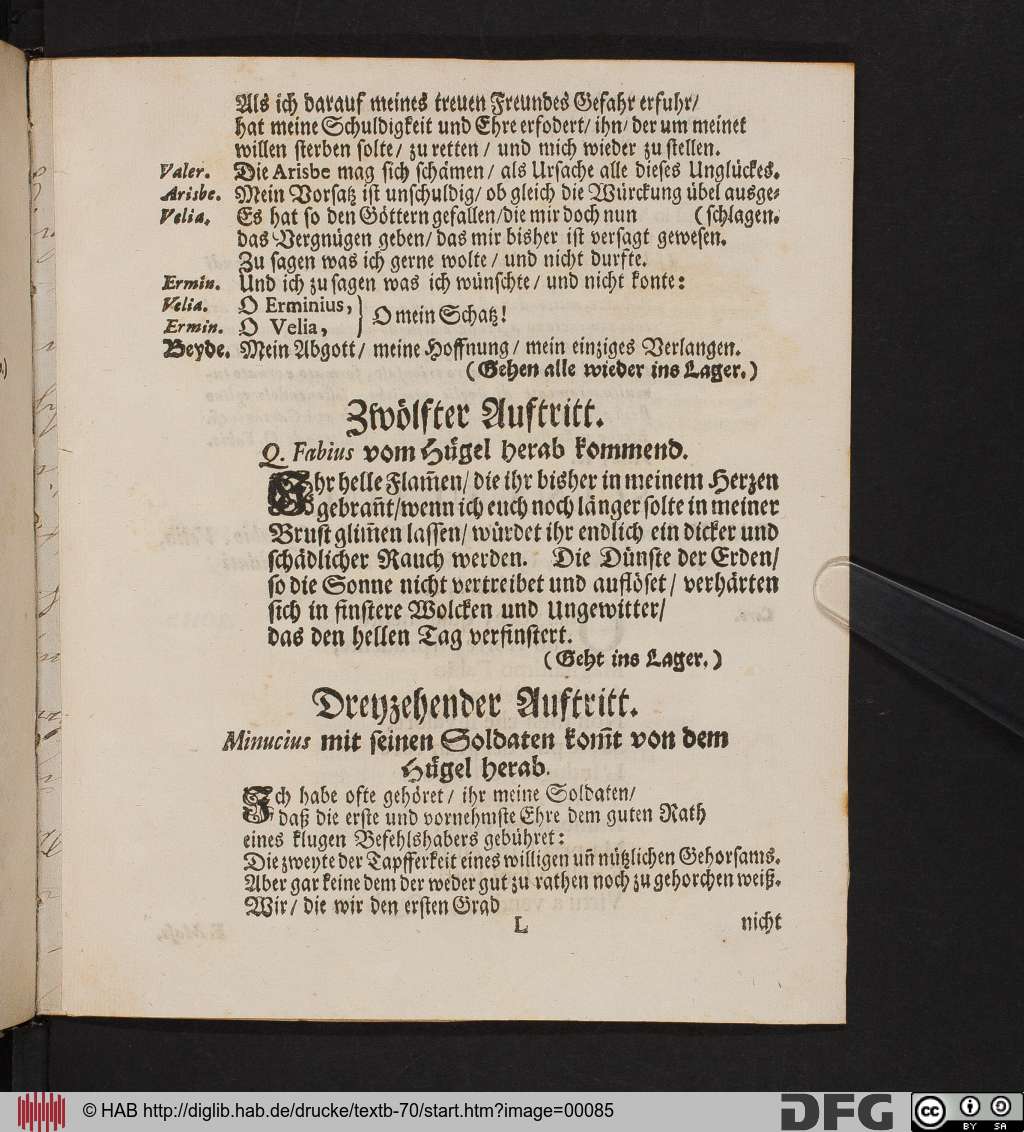 Als ich darauf meines treuen Freundes Gefahr erfuhr/
hat meine Schuldigkeit und Ehre erfodert/ ihn/ der um meinet
willen sterben solte/ zu retten / und mich wieder zu stellen.
Valer. Die Arisbe mag sich schämen / als Ursache alle dieses Unglückes.
Arisbe. Mein Vorsatz ist unschuldig/ ob gleich die Würckung übel ausge-
Velia. Es hat so den Göttern gefallen/die mir doch nun (schlagen.
das Vergnügen geben/ das mir bisher ist versagt gewesen.
Zu sagen was ich gerne wolte / und nicht durfte.
Ermin. Und ich zu sagen was ich wünschte / und nicht konte:
Velia. O Erminius, } O mein Schatz!
Ermin. O Velia,
Beyde. Mein Abgott/ meine Hoffnung/ mein einziges Verlangen.
(Gehen alle wieder ins Lager.)
Zwölfter Auftritt.
Q. Fabius vom Hügel herab kommend.
Ihr helle Flam̃en/ die ihr bisher in meinem Herzen
gebran̄t/wenn ich euch noch länger solte in meiner
Brust glim̃en lassen/ würdet ihr endlich ein dicker und
schädlicher Rauch werden. Die Dünste der Erden/
so die Sonne nicht vertreibet und auflöset/ verhärten
sich in finstere Wolcken und Ungewitter/
das den hellen Tag verfinstert.
(Geht ins Lager.)
Dreyzehender Auftritt.
Minucius mit seinen Soldaten kom̃t von dem
Hügel herab.
Ich habe ofte gehöret/ ihr meine Soldaten/
daß die erste und vornehmste Ehre dem guten Rath
eines klugen Befehlshabers gebühret:
Die zweyte der Tapfferkeit eines willigen un̄ nützlichen Gehorsams.
Aber gar keine dem der weder gut zu rathen noch zu gehorchen weiß.
Wir/ die wir den ersten Grad
L nicht
© HAB http://diglib.hab.de/drucke/textb-70/start.htm?image=00085
DFG
cc BY SA